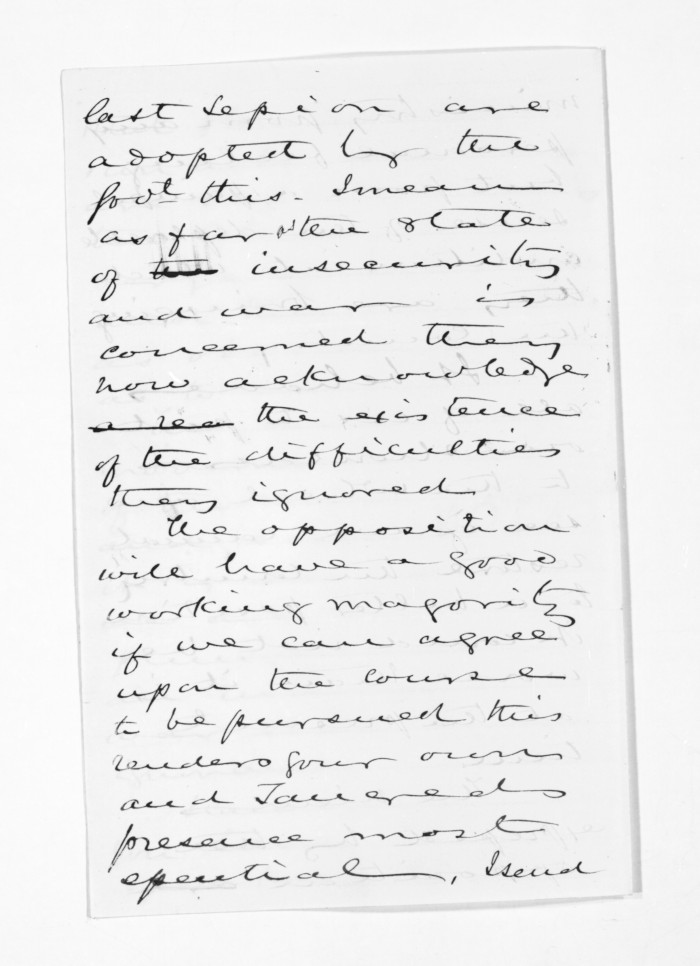 last session are
adopted by the
Govt this. I mean
as far as the state
of the insecurity
and war is
concerned they
now acknowledge
a rea the existence
of the difficulties
they ignored
The opposition
will have a good
working magority
if we can agree
upon the course
to be pursued this
renders your own
and Tancreds
presence most
essential, I send